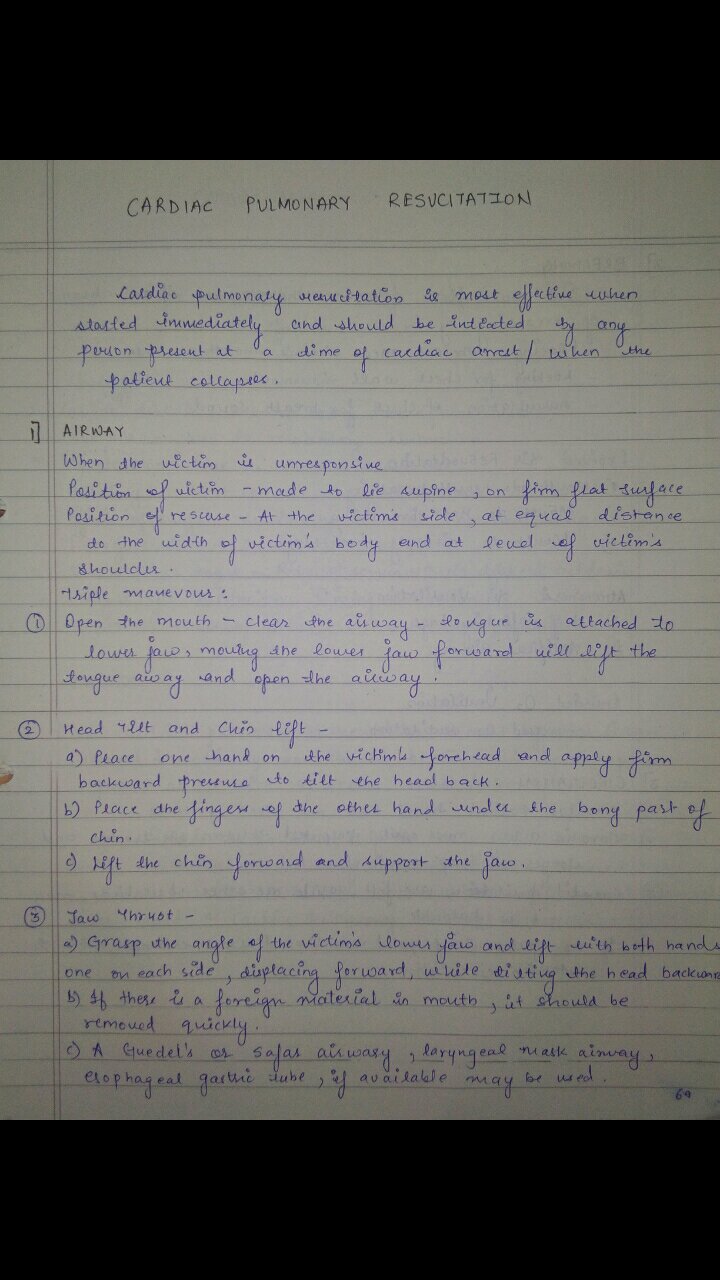 CARDIAC PULMONARY RESUCITATION
Cardiac pulmonary resuscitation is most effective when
started immediately and should be inteated by any
person present at a time of cardiac arrest/ when the
patient collapses.
1] AIRWAY
When the victim is unresponsive
Position of victim - made to lie supine, on firm flat surface
Position of rescuse - At the victim's side, at equal distance
to the width of victim's body and at level of victim's
shoulder.
Triple manevour:
① Open the mouth - clear the airway - tongue is attached to
lower jaw, moving the lower jaw forward will lift the
tongue away and open the airway.
② Head Tilt and Chin lift -
a) Place one hand on the victim's forehead and apply firm
backward pressure to tilt the head back.
b) Place the fingers of the other hand under the bony part of
chin.
c) Lift the chin forward and support the jaw.
③ Jaw Thrust -
a) Grasp the angle of the victim's lower jaw and lift with both hands
one on each side, displacing forward, while tilting the head backward
b) If there is a foreign material in mouth, it should be
removed quickly.
c) A Guedel's or Safar airway, laryngeal mask airway,
esophageal gastric tube, if available may be used.
69